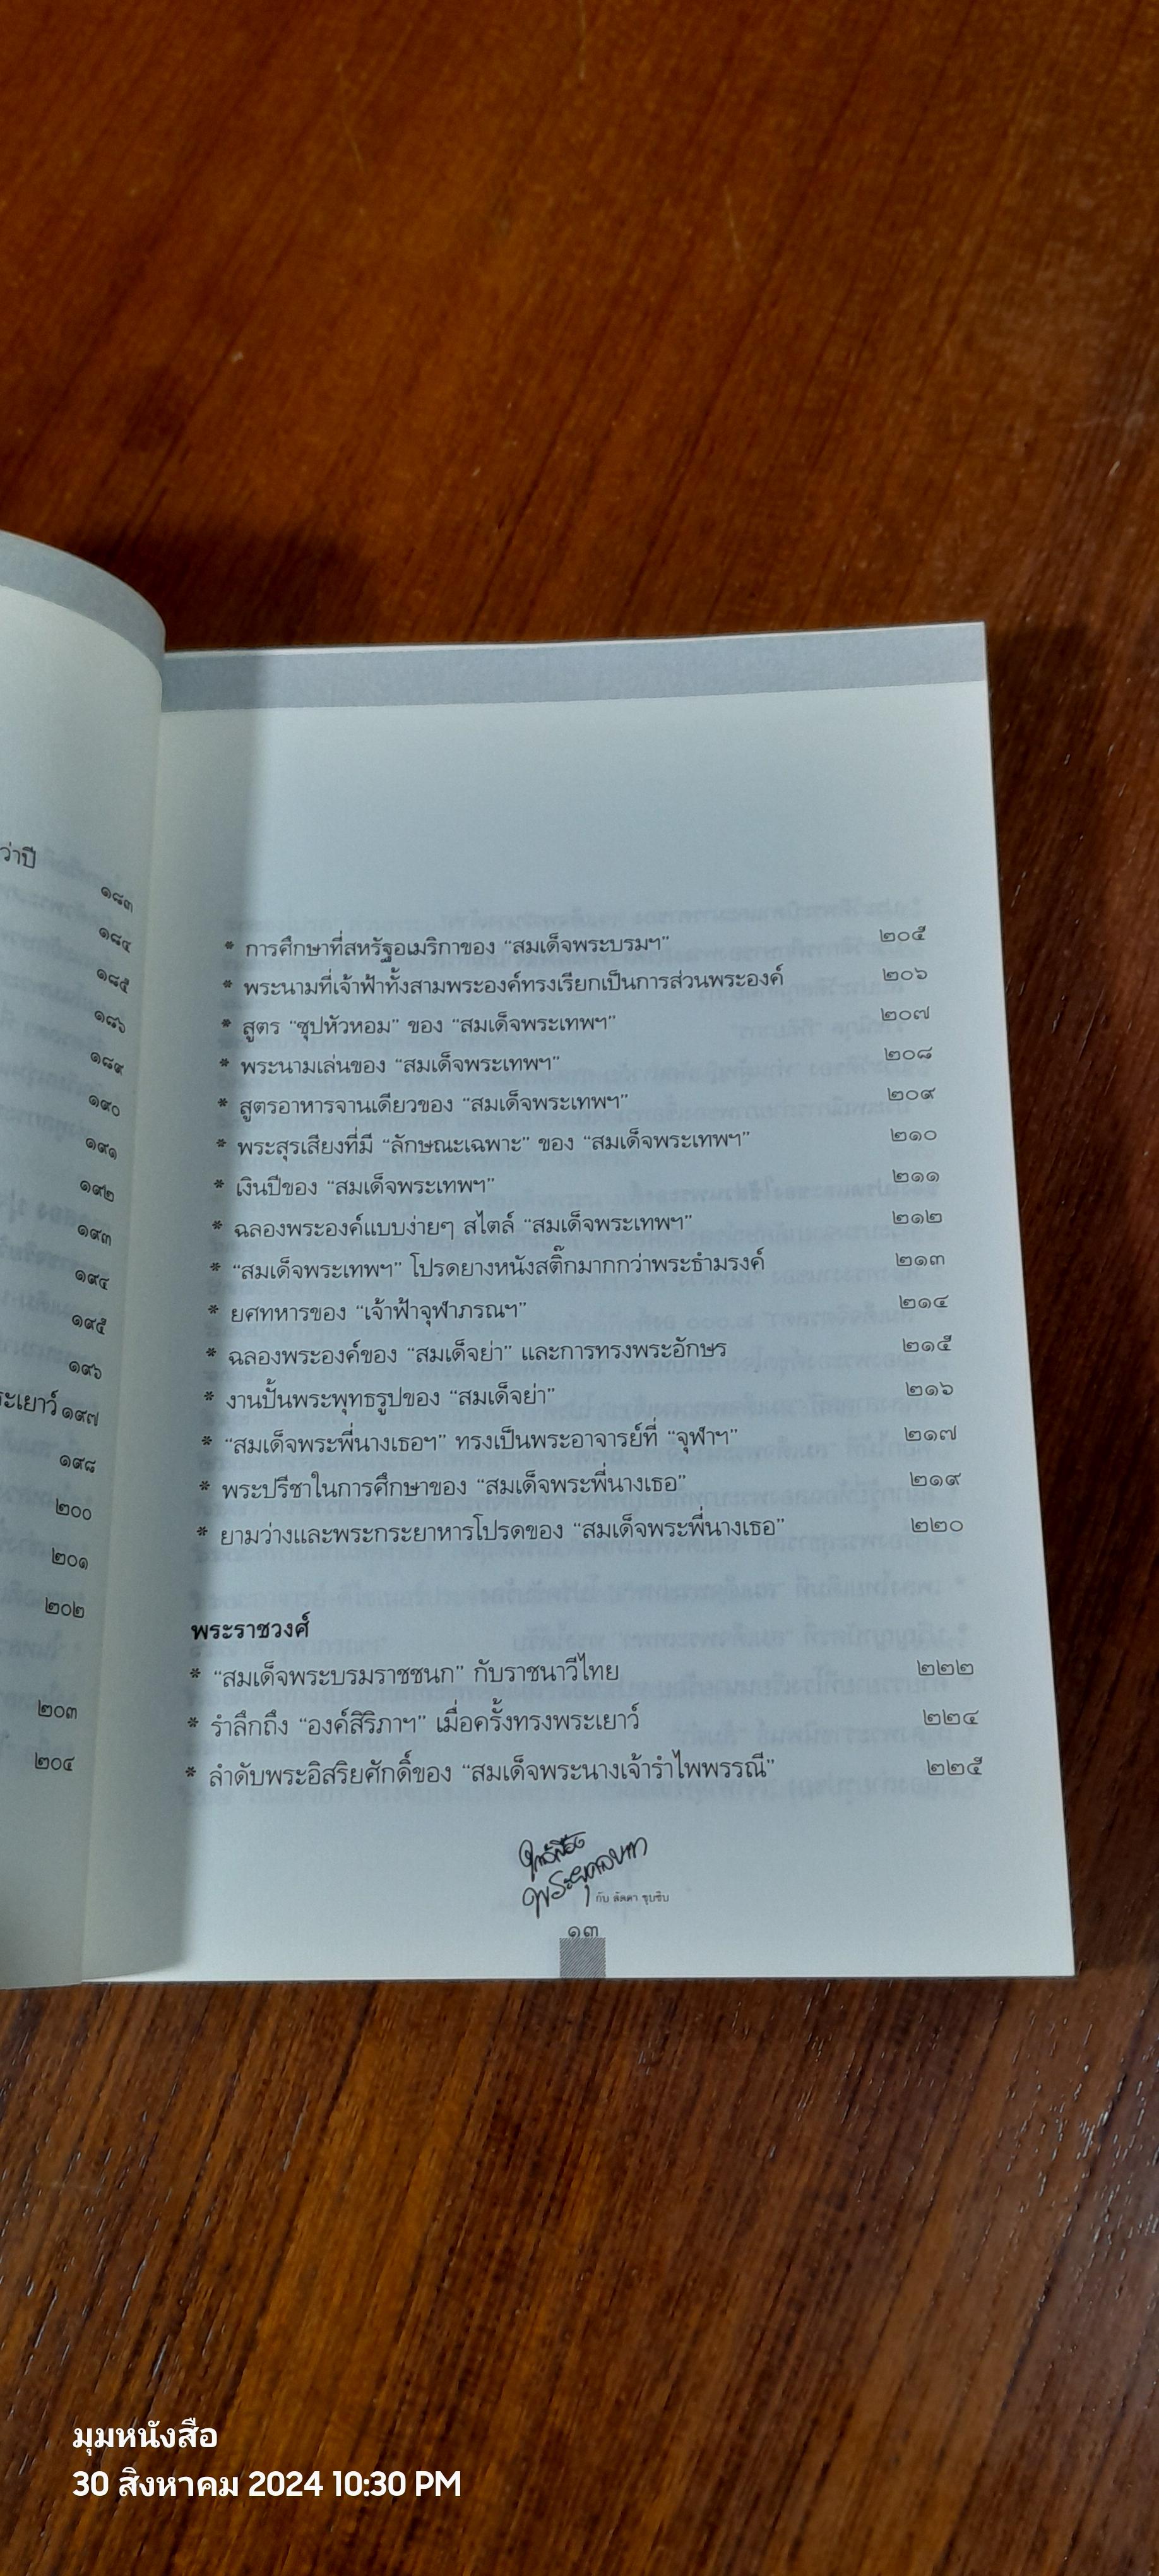 ว่าปี
๑๘๓
๑๘๔
๑๘๕
๑๘๖
๑๘๙
๑๙๐
๑๙๑
๑๙๒
๑๙๓
๑๙๔
๑๙๕
๑๙๖
ระเยาว์ ๑๙๗
๑๙๘
๒๐๐
๒๐๑
๒๐๒
๒๐๓
๒๐๔
* การศึกษาที่สหรัฐอเมริกาของ “สมเด็จพระบรมฯ” ๒๐๕
* พระนามที่เจ้าฟ้าทั้งสามพระองค์ทรงเรียกเป็นการส่วนพระองค์ ๒๐๖
* สูตร “ซุปหัวหอม” ของ “สมเด็จพระเทพฯ” ๒๐๗
* พระนามเล่นของ “สมเด็จพระเทพฯ” ๒๐๘
* สูตรอาหารจานเดียวของ “สมเด็จพระเทพฯ” ๒๐๙
* พระสุรเสียงที่มี “ลักษณะเฉพาะ” ของ “สมเด็จพระเทพฯ” ๒๑๐
* เงินปีของ “สมเด็จพระเทพฯ” ๒๑๑
* ฉลองพระองค์แบบง่ายๆ สไตล์ “สมเด็จพระเทพฯ” ๒๑๒
* “สมเด็จพระเทพฯ” โปรดยางหนังสติ๊กมากกว่าพระธำมรงค์ ๒๑๓
* ยศทหารของ “เจ้าฟ้าจุฬาภรณฯ” ๒๑๔
* ฉลองพระองค์ของ “สมเด็จย่า” และการทรงพระอักษร ๒๑๕
* งานปั้นพระพุทธรูปของ “สมเด็จย่า” ๒๑๖
* “สมเด็จพระพี่นางเธอฯ” ทรงเป็นพระอาจารย์ที่ “จุฬาฯ” ๒๑๗
* พระปรีชาในการศึกษาของ “สมเด็จพระพี่นางเธอ” ๒๑๙
* ยามว่างและพระกระยาหารโปรดของ “สมเด็จพระพี่นางเธอ” ๒๒๐
พระราชวงศ์
* “สมเด็จพระบรมราชชนก” กับราชนาวีไทย ๒๒๒
* รำลึกถึง “องค์สิริภาฯ” เมื่อครั้งทรงพระเยาว์ ๒๒๔
* ลำดับพระอิสริยศักดิ์ของ “สมเด็จพระนางเจ้ารำไพพรรณี” ๒๒๕
ใต้เบื้อง
พระยุคลบาท
กับ ลัดดา ซุบซิบ
๑๓
มุมหนังสือ
30 สิงหาคม 2024 10:30 PM